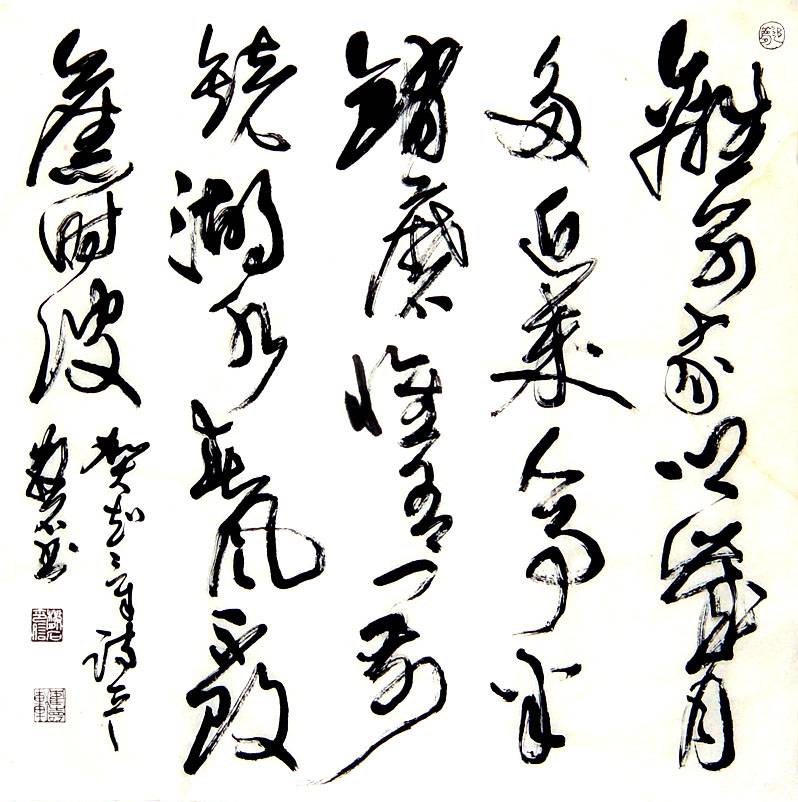 離別家鄉歲月
多近來人事半
銷磨惟有門前
鏡湖水春風不改
舊時波
賀知章詩